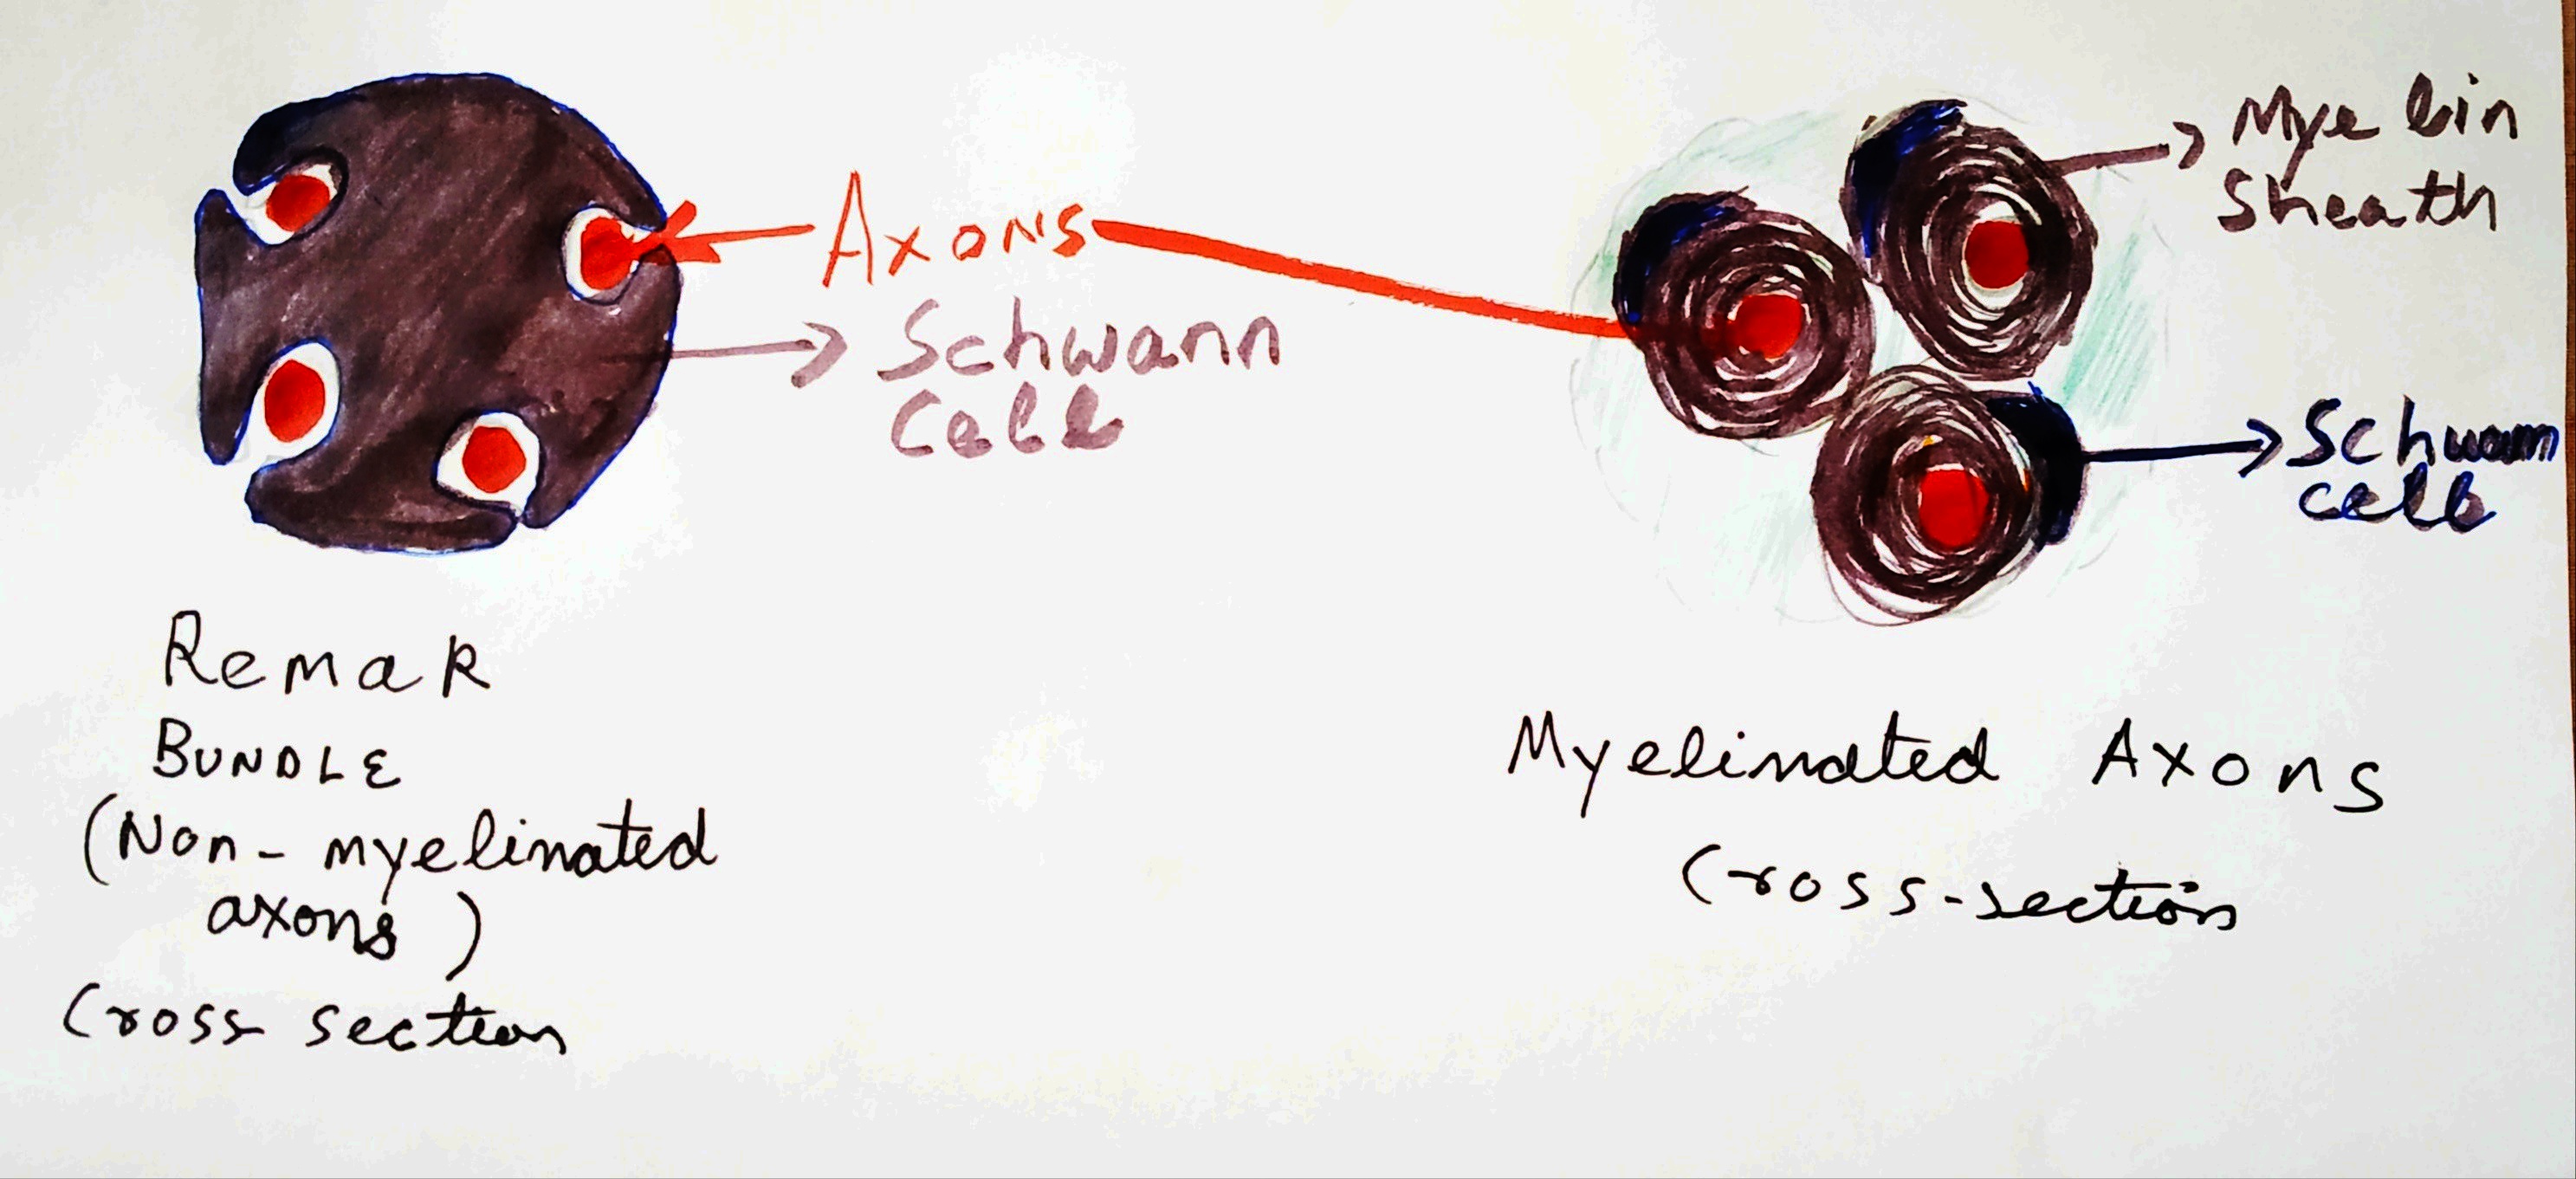 Axons
Schwann
Cell
Myelin
Sheath
Schwann
cell
Remak
BUNDLE
(Non-myelinated
axons)
Cross section
Myelinated Axons
Cross-section